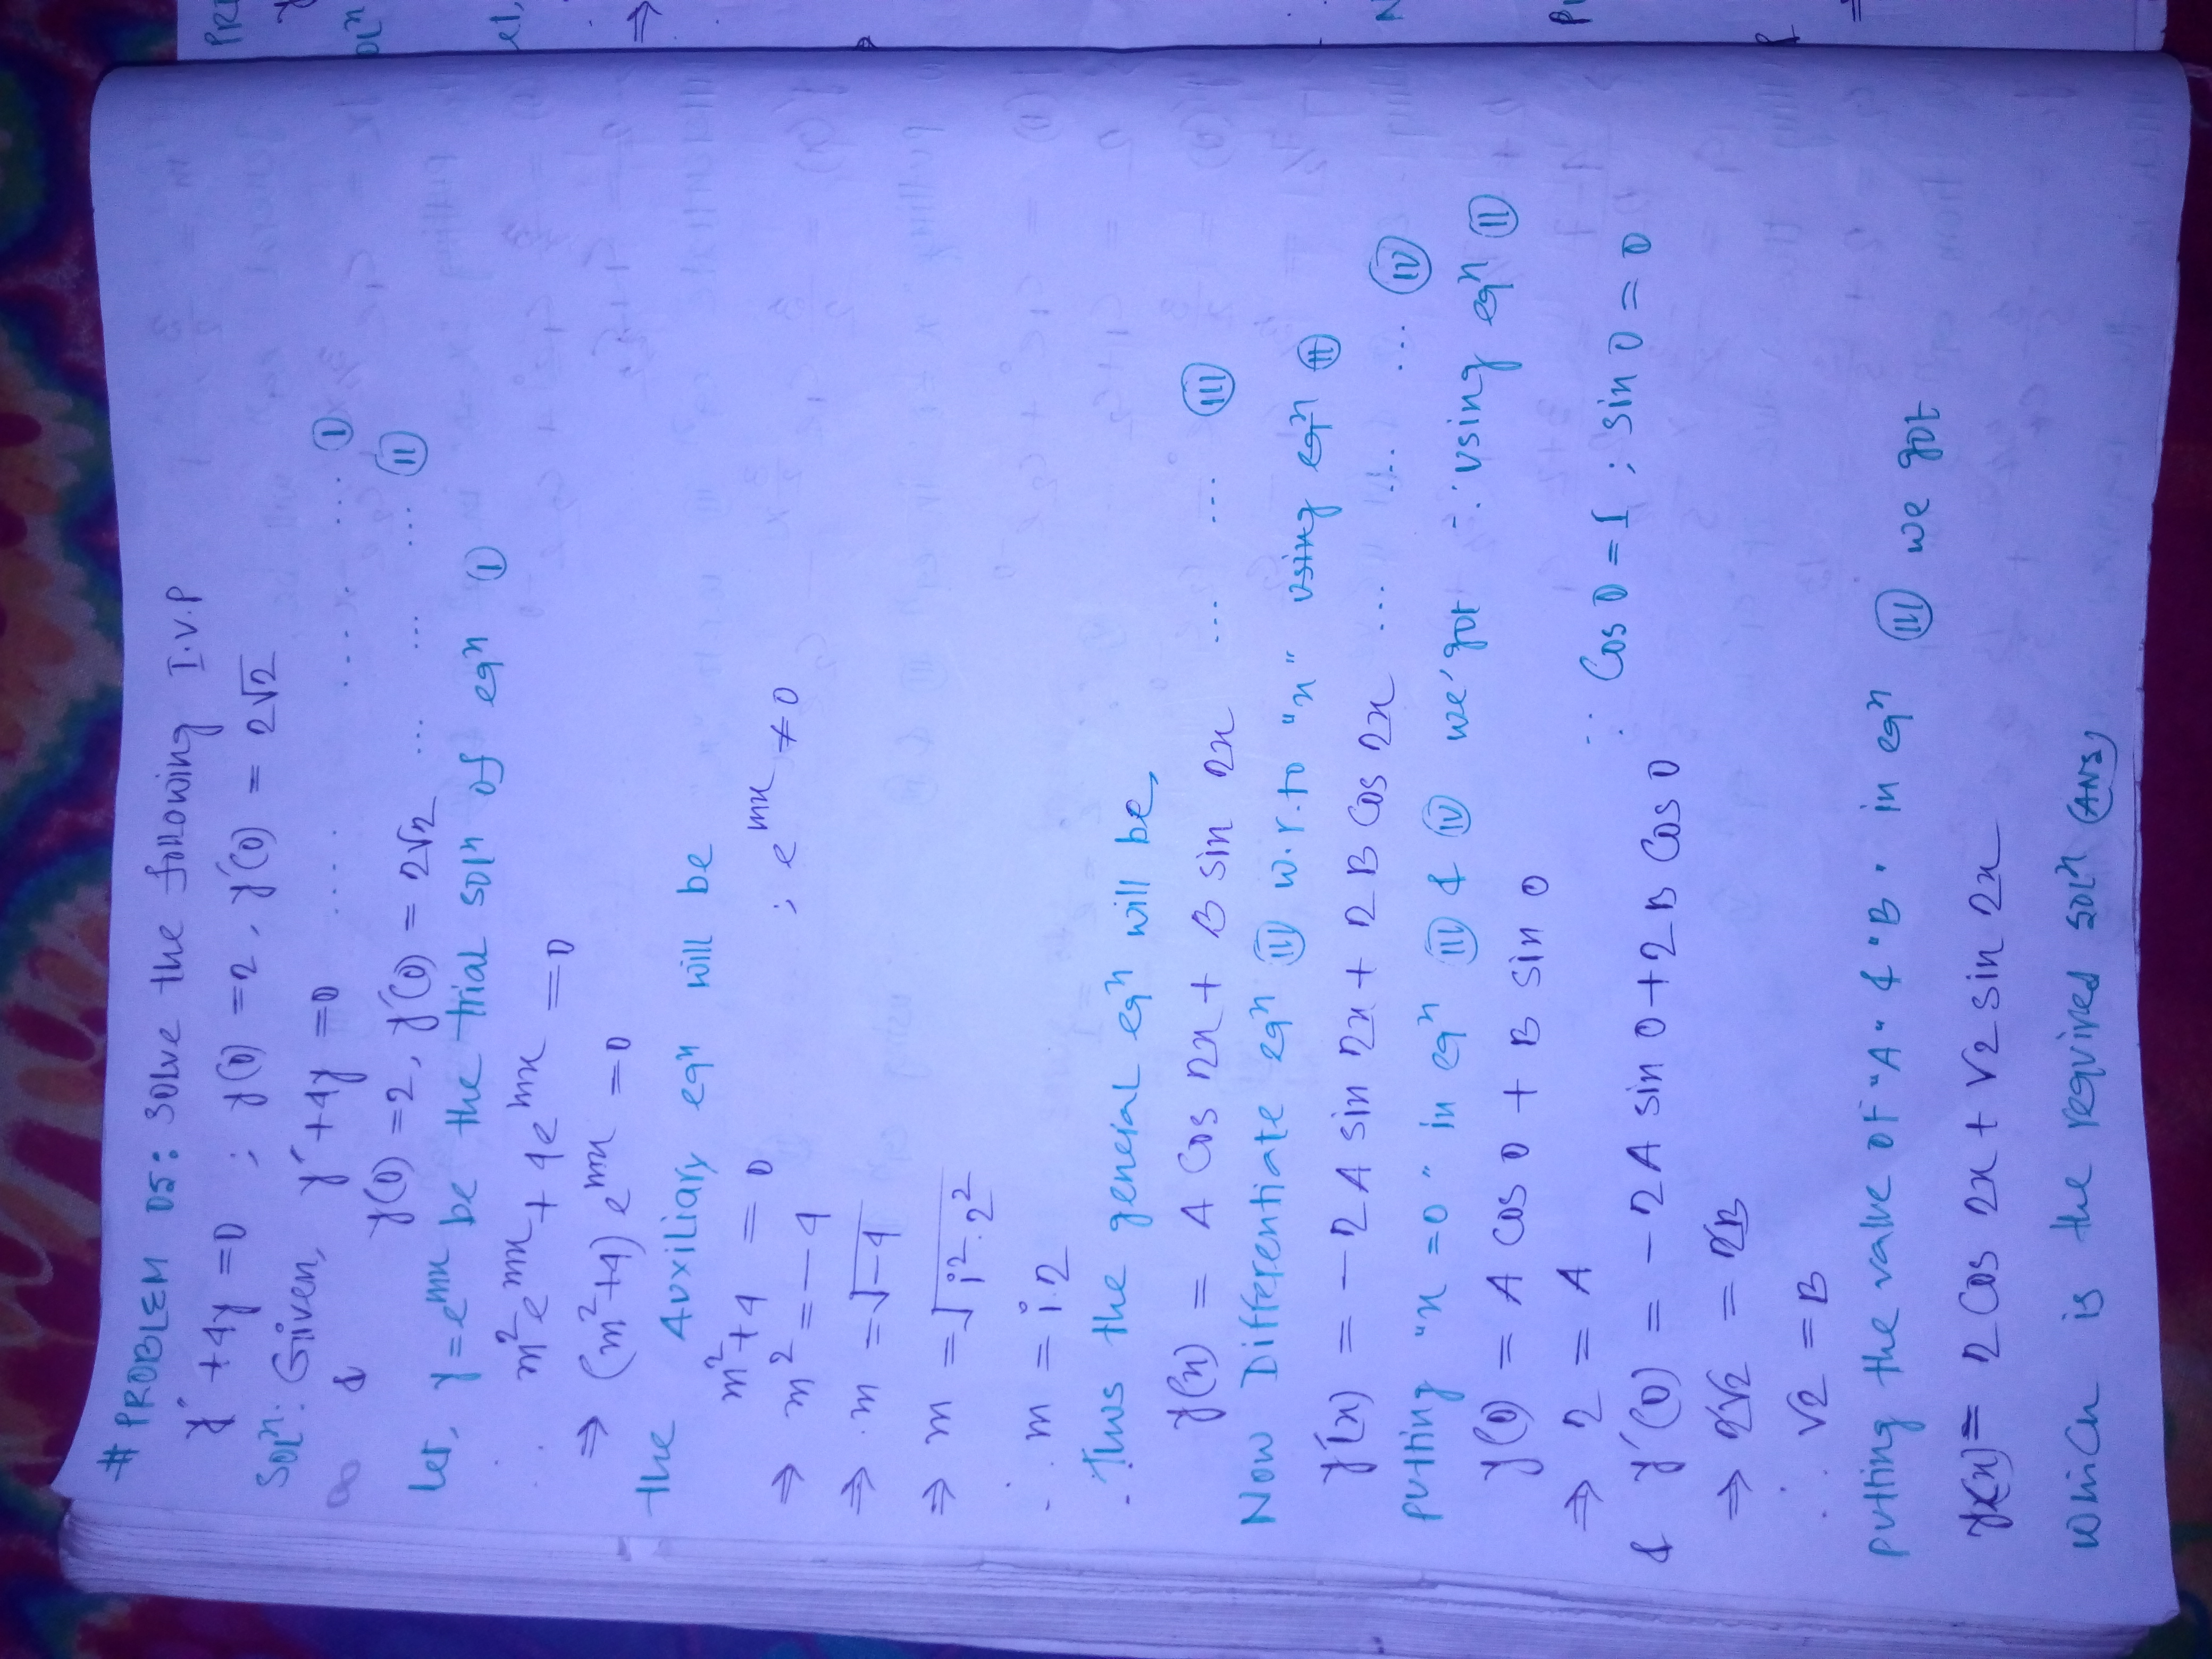 # PROBLEM 05: Solve the following I.V.P
y″ + 4y = 0 ; y(0) = 2, y′(0) = 2√2
Solⁿ: Given, y″ + 4y = 0 ... ... ... ... Ⓘ
& y(0) = 2, y′(0) = 2√2 ... ... ... Ⓘⓘ
Let, y = e^mx be the trial solⁿ of eqⁿ Ⓘ
∴ m²e^mx + 4e^mx = 0
⇒ (m²+4) e^mx = 0
the Auxiliary eqⁿ will be
m² + 4 = 0 ; e^mx ≠ 0
⇒ m² = -4
⇒ m = √-4
⇒ m = √i².2²
∴ m = i.2
∴ Thus the general eqⁿ will be,
y(x) = A Cos 2x + B sin 2x ... ... (III)
Now Differentiate eqⁿ (III) w.r.to "x" using eqⁿ (II)
y′(x) = -2A sin 2x + 2B Cos 2x ... ... (IV)
putting "x = 0" in eqⁿ (III) & (IV) we got ∵ using eqⁿ (II)
y(0) = A Cos 0 + B sin 0
⇒ 2 = A ∴ Cos 0 = 1 ; sin 0 = 0
& y′(0) = -2A sin 0 + 2B Cos 0
⇒ 2√2 = 2B
∴ √2 = B
putting the value of "A" & "B" in eqⁿ (III) we got
y(x) = 2 Cos 2x + √2 sin 2x
which is the required solⁿ (Ans)